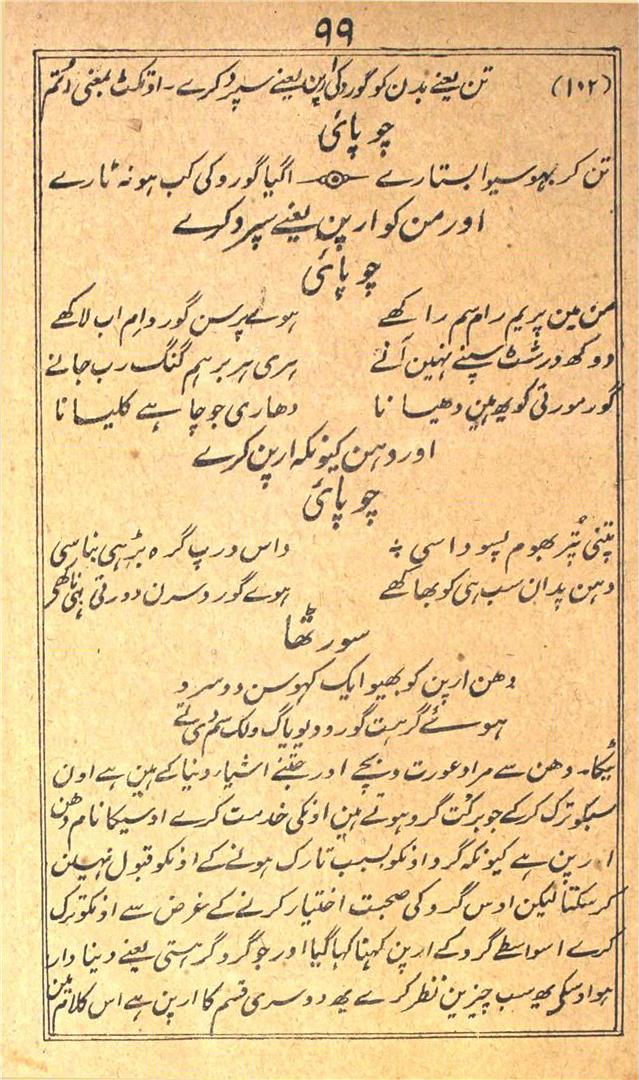 ۹۹
(۱۰۲) تن یعنے بدن کو گورو کی ارپن یعنے سپرد کرے۔ اوتکٹ بمعنی اُتم
چوپائی
تن کر بہو سیوا بستارے اگیا گورو کی کب ہو نہ ٹارے
اور من کو ارپن یعنے سپرد کرے
چوپائی
من مین پریم رام ہم راکھے ہوے پرسن گورو اِم اب لاکھے
دوکھ درشٹ سپنے نہین آنے ہری ہر برہم گنگ رب جانے
گور مورتی کو یہ مین دھیانا دھاری جو چاہے کلیانا
اور دہن کیونکہ ارپن کرے
چوپائی
پتنی پُتر بھوم پسو داسی داس درپ گرہ بڑہی بناسی
دہن پدان سب ہی کو بھاکھے ہوے گورو سرن دورتی
سورٹھا
دھن ارپن کو بھیو ایک کہو سن دوسرو
ہوئے گرہست گورو دیو یاگ ولک سم دیئے
ٹیکا۔ دھن سے مراد عورت و بچے اور جتنے اشیاء دنیا کے ہین ہے اون
سبکو ترک کرکے جو برکت گرو ہوتے ہین اونکی خدمت کرے اوسیکا نام دھن
ارپن ہے کیونکہ گرو اونکو بسبب تارک ہونے کے اونکو قبول نہین
کرسکتا لیکن اوس گرو کی صحبت اختیار کرنے کے غرض سے اونکو ترک
کرے اسواسطے گرو کے ارپن کہنا کہا گیا اور جو گرو گرہستی یعنے دنیا دار
ہو اوسکی یہ سب چیزین نظر کرے یہ دوسری قسم کا ارپن ہے اس کلام مین